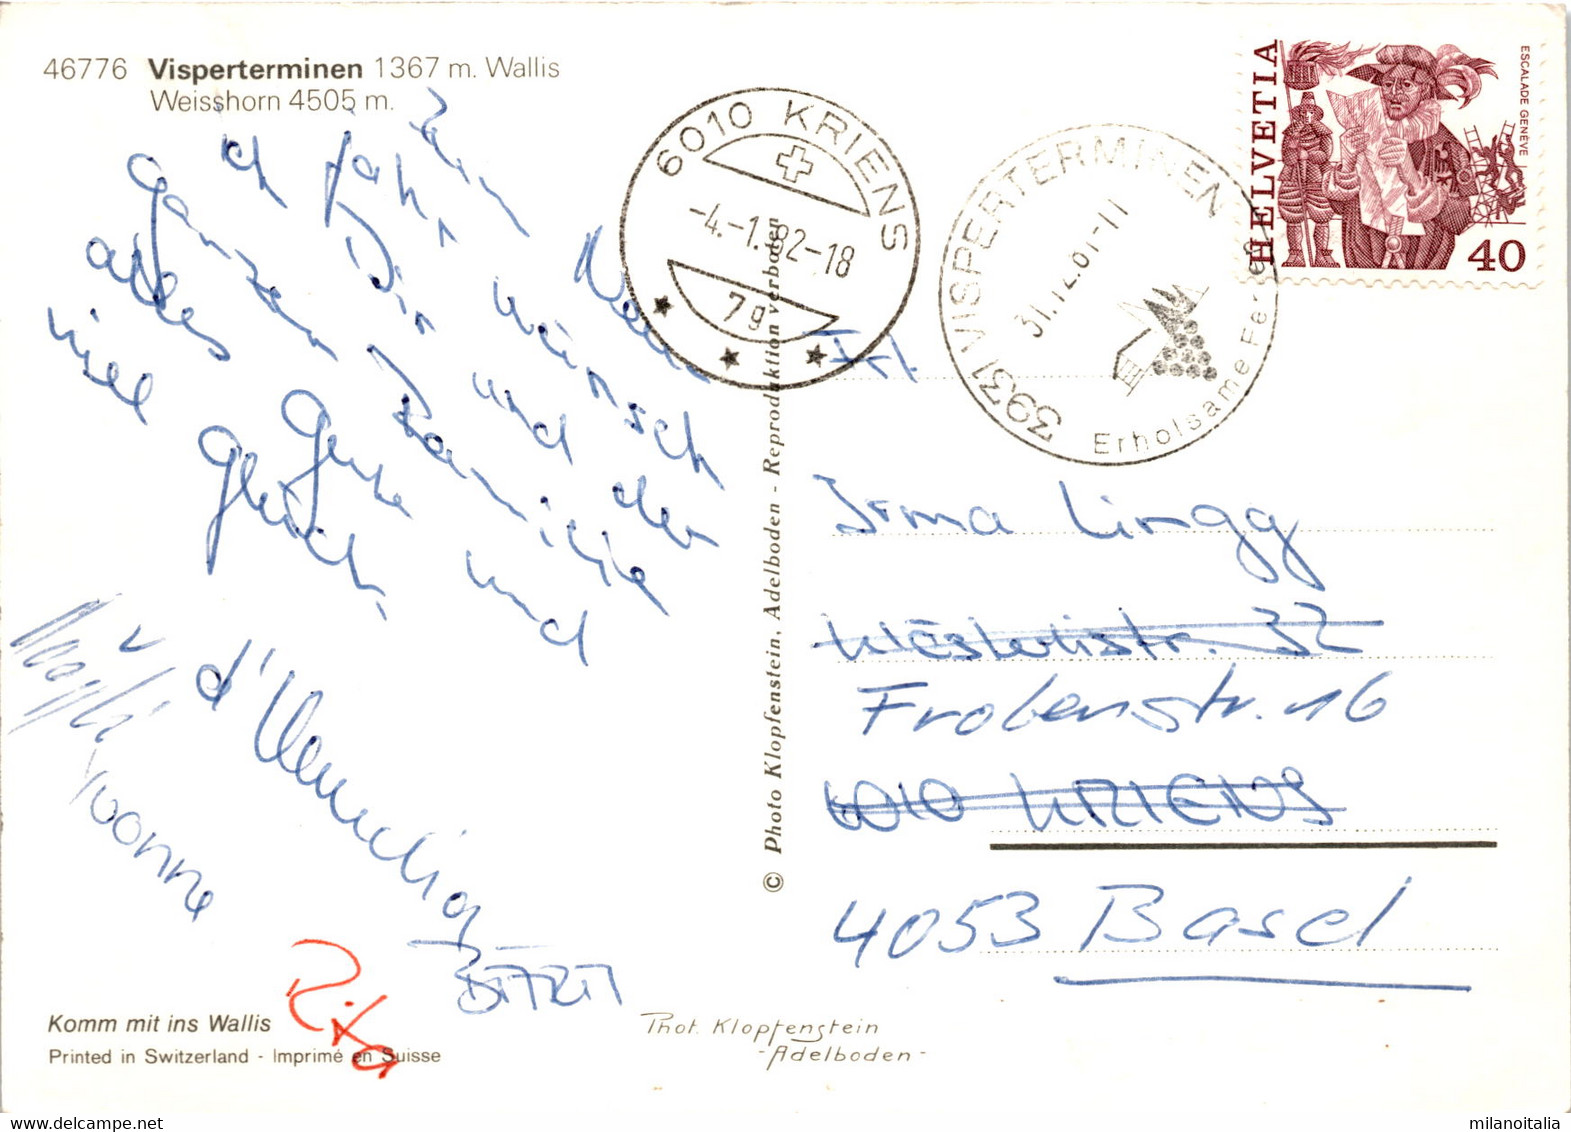 46776 Visperterminen 1367 m. Wallis
Weisshorn 4505 m.
Zum Neuen
Jahr wünsch
ich Dir und der
ganzen Familie
alles Gute und
viel Glück.
d'Vermeliga
Yvonne
BITZI
Rita
Komm mit ins Wallis
Printed in Switzerland - Imprimé en Suisse
Phot. Klopfenstein
-Adelboden-
© Photo Klopfenstein, Adelboden - Reproduktion verboten
6010 KRIENS
-4.-1.82-18
7g
3931 VISPERTERMINEN
31.12.81-11
Erholsame Ferien
HELVETIA
ESCALADE GENÈVE
40
Frl.
Irma Lingg
Frobenstr. 16
6010 KRIENS
4053 Basel
milanoitalia